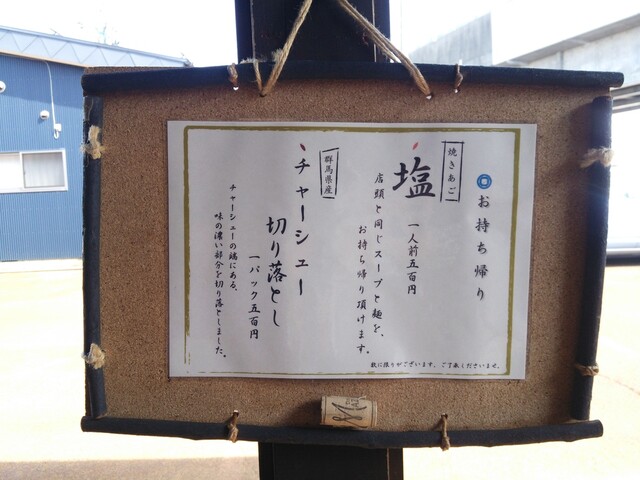 お持ち帰り
焼きあご
塩
一人前五百円
店頭と同じスープと麺を、
お持ち帰り頂けます。
群馬県産
チャーシュー
切り落とし
一パック五百円
チャーシューの端にある、
味の濃い部分を切り落としました。
数に限りがございます、ご了承くださいませ。